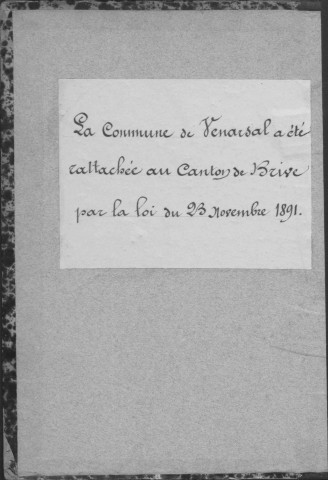 La Commune de Venarsal a été
rattachée au Canton de Brive
par la loi du 23 Novembre 1891.